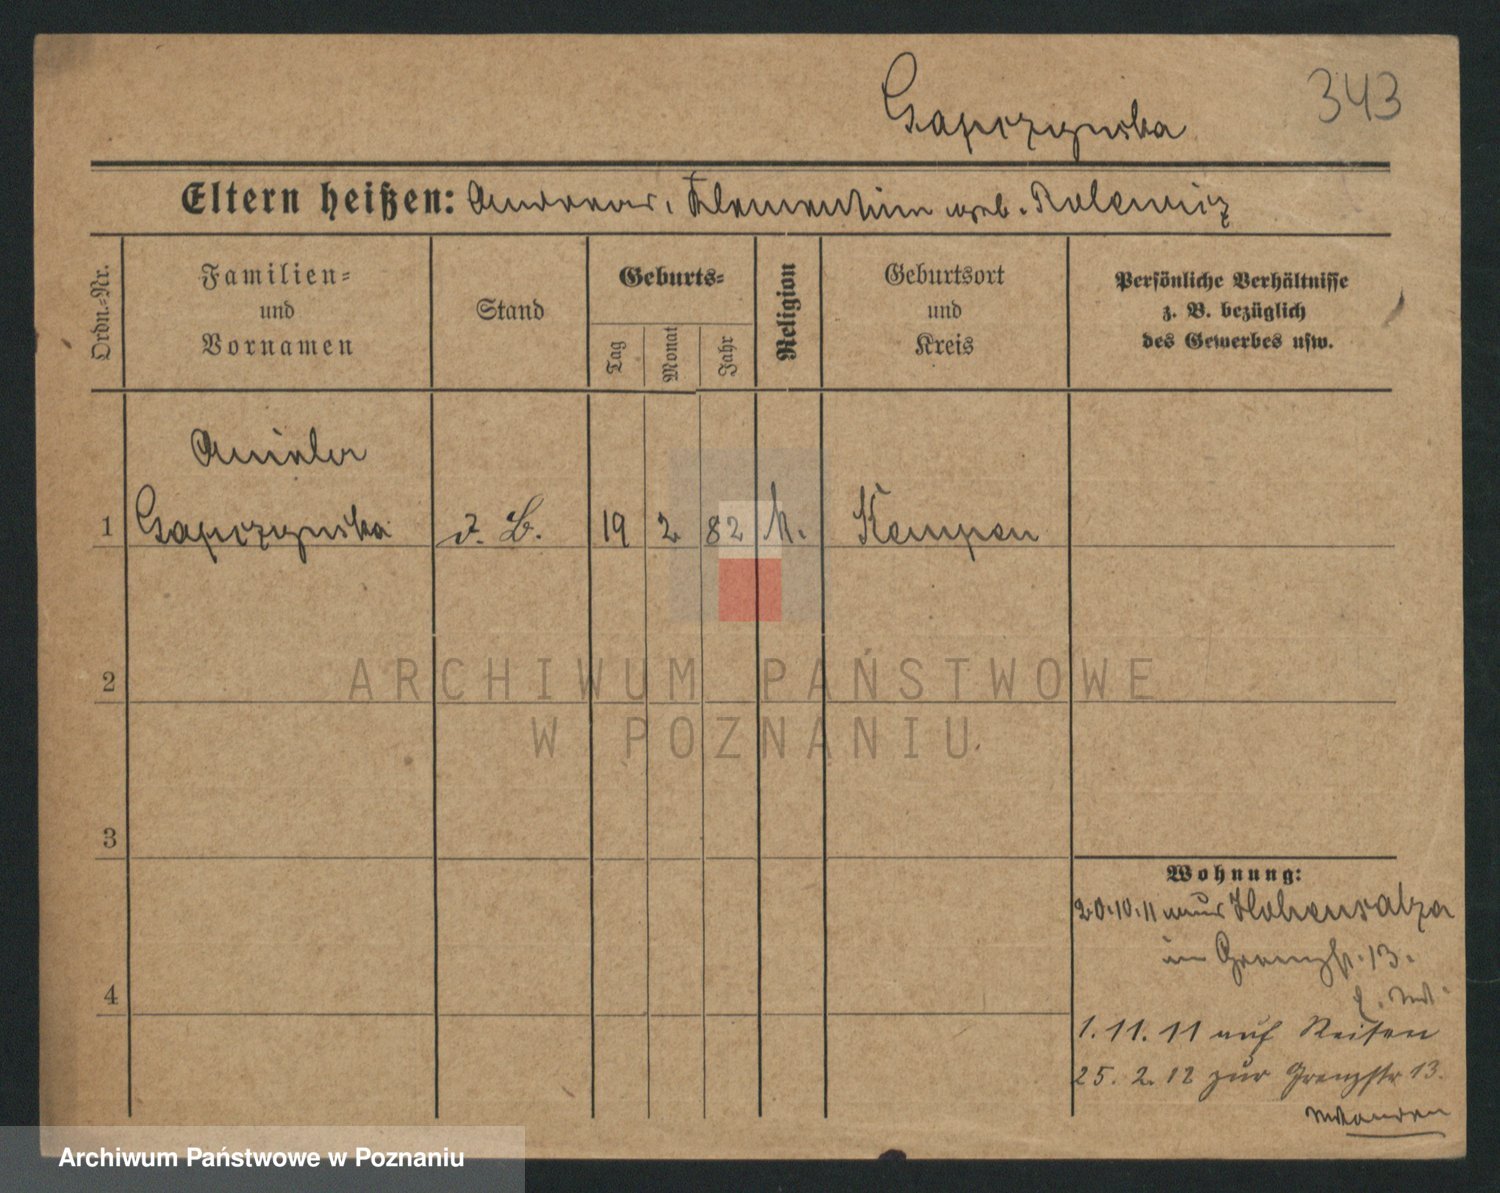 343
Gapczynska
Eltern heißen: Andreas, Klementine geb.
Ordn.-Nr.
Familien-
und
Vornamen
Stand
Geburts-
Tag
Monat
Jahr
Religion
Geburtsort
und
Kreis
Persönliche Verhältnisse
z. B. bezüglich
des Gewerbes usw.
Aniela
1 Gapczynska o. B. 19 2 82 k. Kempen
2
ARCHIWUM PAŃSTWOWE
W POZNANIU
3
Wohnung:
20.10.11 aus Hohensalza
in Grenzstr. 13.
4
1. 11. 11 auf Reisen
25. 2. 12 zur Grenzstr 13.
Archiwum Państwowe w Poznaniu